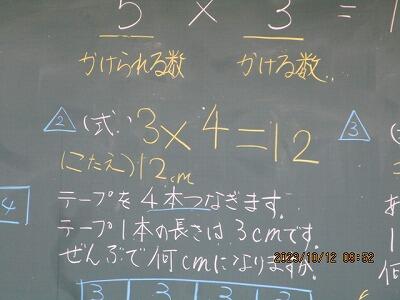 5 × 3 = 1
かけられる数 かける数
2 (式) 3×4=12
(こたえ)12cm
3
4
テープを4本つなぎます。
テープ1本の長さは3cmです。
ぜんぶで何cmになりますか。
3 3 3 3
2023/10/12 09:52